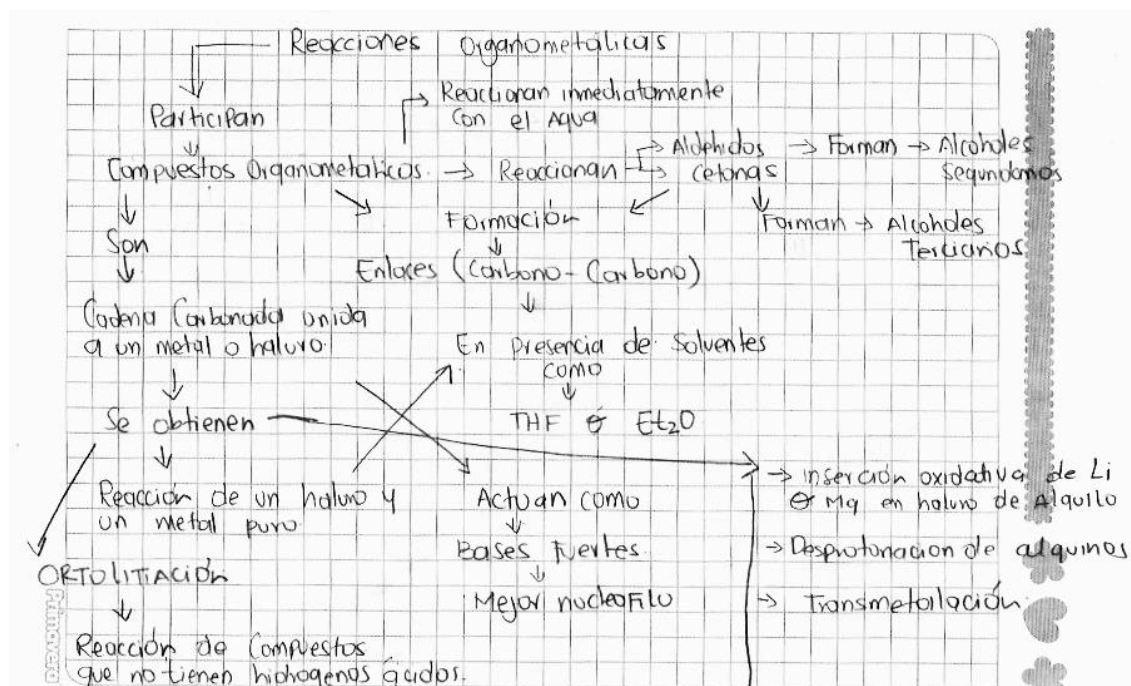 Reacciones Organometálicas
Participan
Reaccionan inmediatamente
con el Agua
Compuestos Organometalicos → Reaccionan → Aldehidos → Forman → Alcoholes
Segundarios
→ Cetonas
Forman → Alcoholes
Terciarios
Son
Formación
Enlaces (Carbono - Carbono)
Cadena Carbonada unida
a un metal o haluro.
En presencia de Solventes
como
THF ó Et₂O
Se obtienen
Reacción de un haluro y
un metal puro.
Actuan como
Bases Fuertes.
Mejor nucleoFilo
→ inserción oxidativa de Li
o Mg en haluro de Alquilo
→ Desprotonacion de alquinos
→ Transmetalación.
ORTOLITIACIÓN
Reacción de Compuestos
que no tienen hidrogenos ácidos.
Primavera